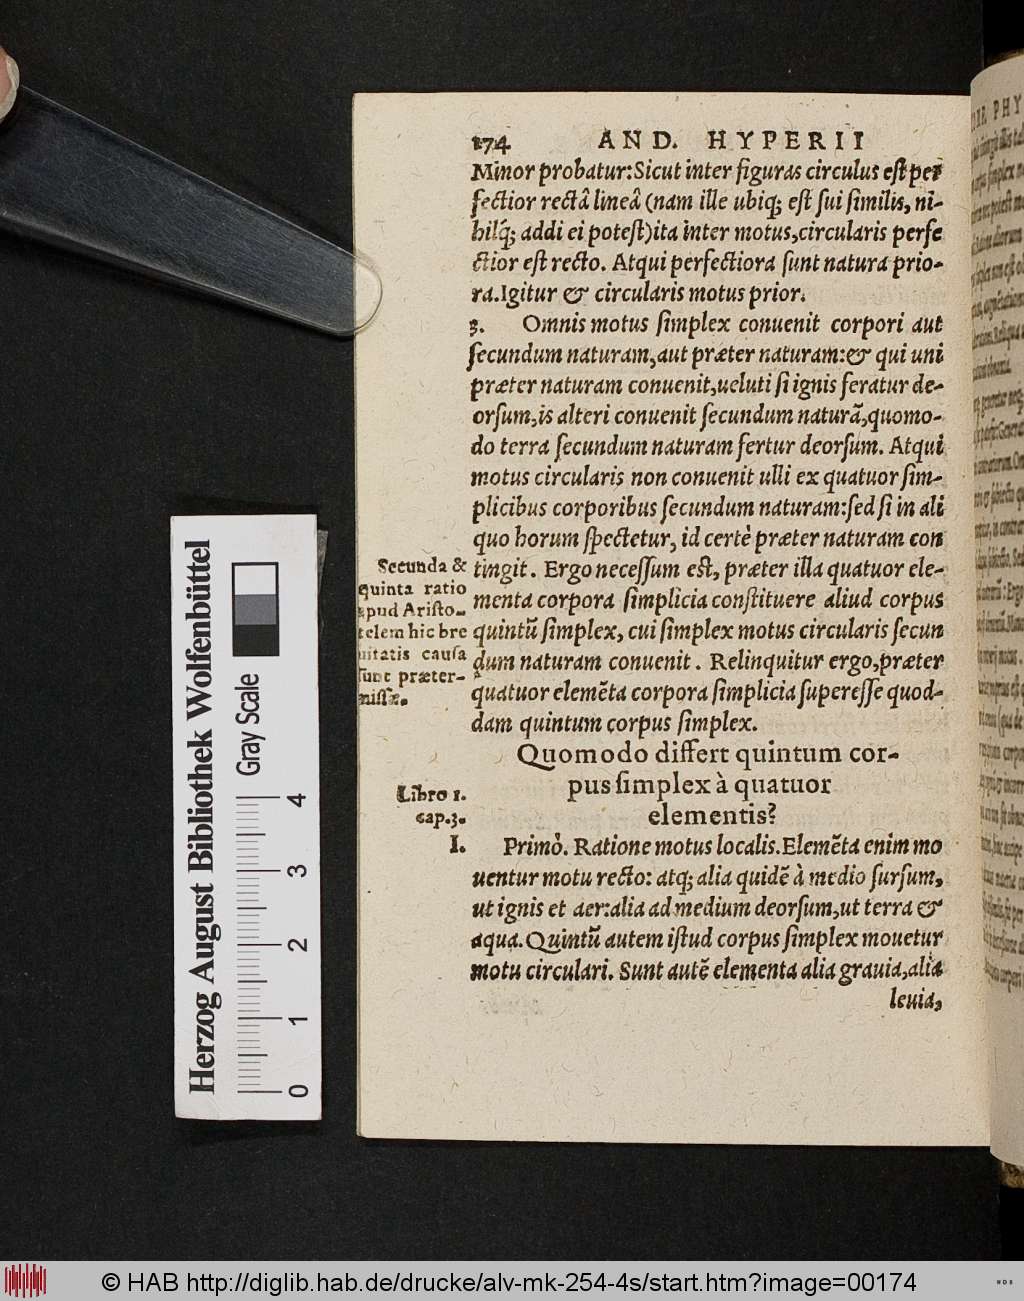 174 AND. HYPERII
Minor probatur: Sicut inter figuras circulus est per
fectior rectâ lineâ (nam ille ubiq; est sui similis, ni-
hilq́; addi ei potest) ita inter motus, circularis perfe
ctior est recto. Atqui perfectiora sunt natura prio-
ra. Igitur & circularis motus prior.
3. Omnis motus simplex conuenit corpori aut
secundum naturam, aut præter naturam: & qui uni
præter naturam conuenit, ueluti si ignis feratur de-
orsum, is alteri conuenit secundum naturã, quomo-
do terra secundum naturam fertur deorsum. Atqui
motus circularis non conuenit ulli ex quatuor sim-
plicibus corporibus secundum naturam: sed si in ali
quo horum spectetur, id certè præter naturam con
tingit. Ergo necessum est, præter illa quatuor ele-
menta corpora simplicia constituere aliud corpus
quintũ simplex, cui simplex motus circularis secun
dum naturam conuenit. Relinquitur ergo, præter
quatuor elemẽta corpora simplicia superesse quod-
dam quintum corpus simplex.
Secunda &
quinta ratio
apud Aristo-
telem hic bre
uitatis causa
sunt præter-
missæ.
Quomodo differt quintum cor-
pus simplex à quatuor
elementis?
Libro 1.
cap. 3.
I.
Primò. Ratione motus localis. Elemẽta enim mo
uentur motu recto: atq; alia quidẽ à medio sursum,
ut ignis et aer: alia ad medium deorsum, ut terra &
aqua. Quintũ autem istud corpus simplex mouetur
motu circulari. Sunt autẽ elementa alia grauia, alia
leuia,
Herzog August Bibliothek Wolfenbüttel
Gray Scale
0 1 2 3 4
© HAB http://diglib.hab.de/drucke/alv-mk-254-4s/start.htm?image=00174